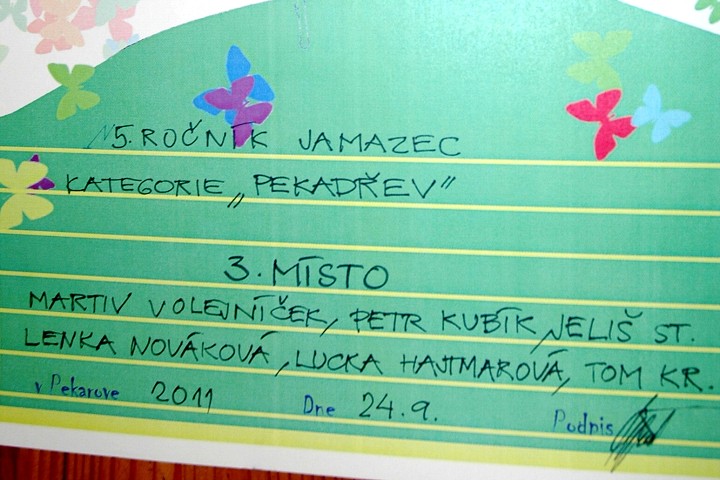 5. ROČNÍK JAMAZEC
KATEGORIE „PEKADŘEV"
3. MÍSTO
MARTIV VOLEJNÍČEK, PETR KUBÍK, NELIŠ ST.
LENKA NOVÁKOVÁ, LUCKA HAJTMAROVÁ, TOM KR.
v Pekarove 2011 Dne 24.9. Podpis